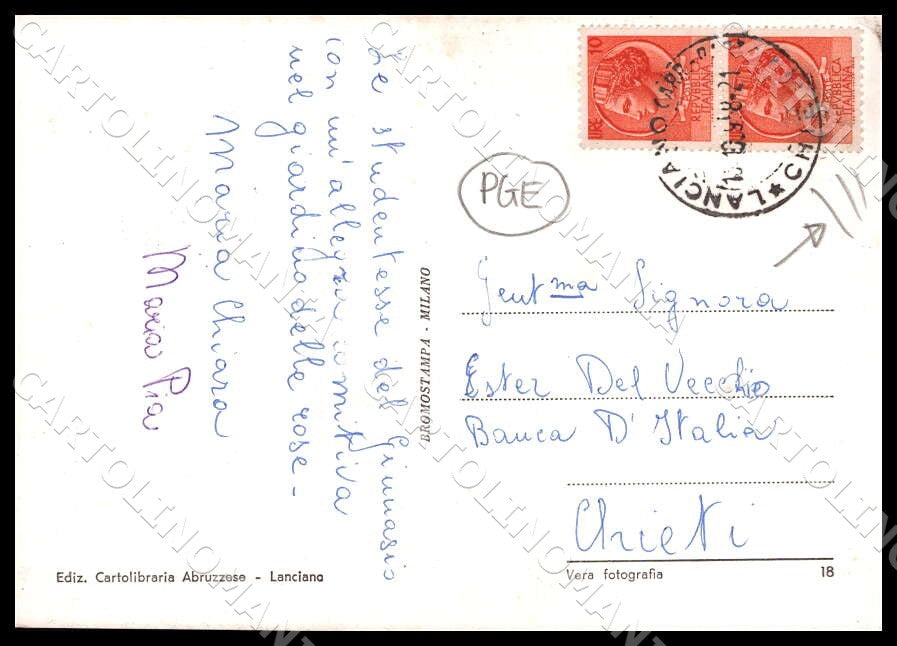 Le studentesse del Ginnasio
con un'allegra comitiva
nel giardino delle rose -
Maria Chiara
Maria Pia
BROMOSTAMPA - MILANO
Ediz. Cartolibraria Abruzzese - Lanciano
LIRE 10
REPVBBLICA
ITALIANA
REPVBBLICA
ITALIANA
LANCIANO
PGE
Gent.ma Signora
Ester Del Vecchio
Banca D'Italia
Chieti
Vera fotografia
18
CARTOLINOMANTI